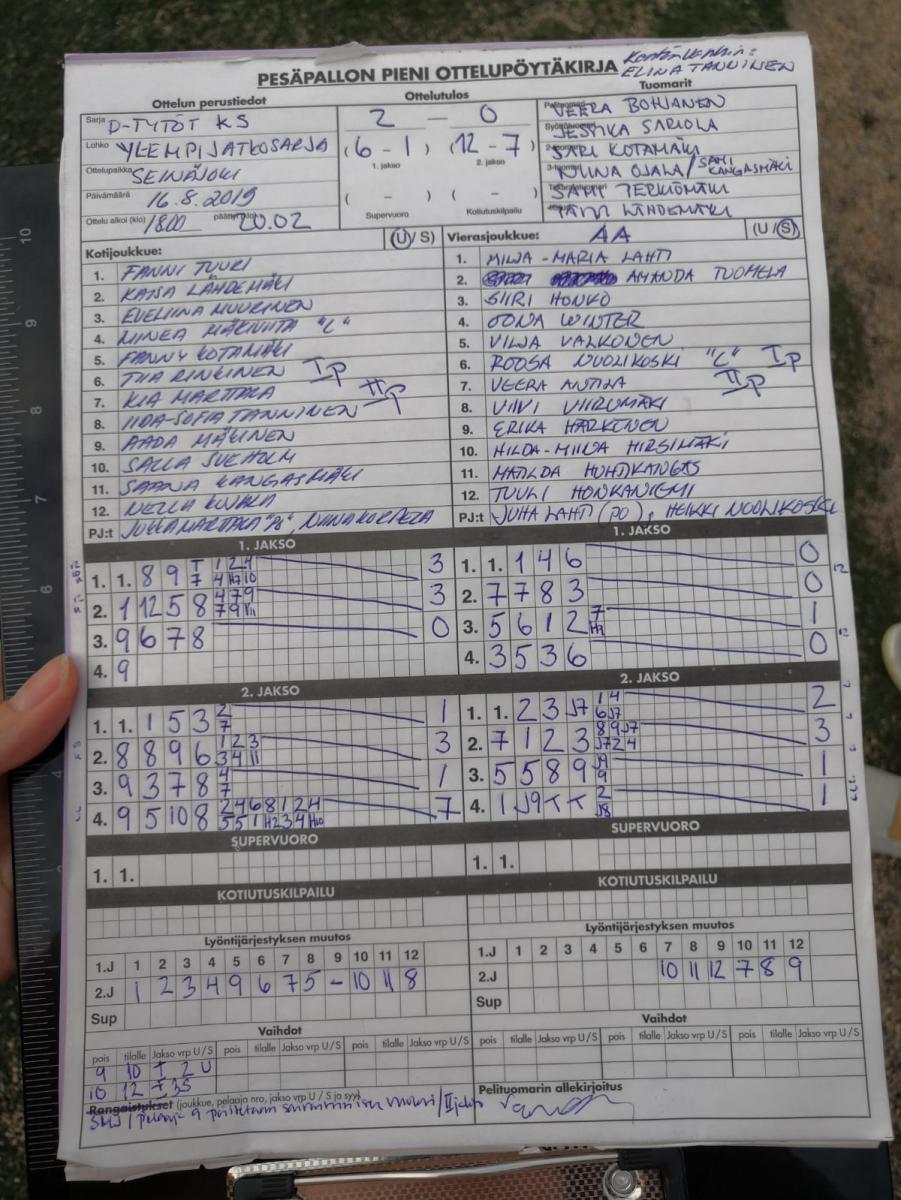 PESÄPALLON PIENI OTTELUPÖYTÄKIRJA
ELINA TANNINEN
Ottelun perustiedot
Ottelutulos
Tuomarit
Sarja D-TYTÖT KS
Lohko YLEMPI JATKOSARJA
Ottelupaikka SEINÄJOKI
Päivämäärä 16.8.2019
Ottelu alkoi (klo) 18.00 20.02
2 — 0
(6 - 1) (12 - 7)
1. jakso 2. jakso
( - ) ( - )
Supervuoro Kotiutuskilpailu
VEERA BOHJANEN
JESSIKA SARIOLA
SARI KOTAMÄKI
NIINA OJALA / SAMI KANGASMÄKI
SAMI TERKIOMÄKI
LÄHDEMÄKI
Kotijoukkue: (U / S)
1. FANNI TUURI
2. KAISA LÄHDEMÄKI
3. EVELIINA NUURINEN
4. MINEA "C"
5. FANNY KOTAMÄKI
6. TIIA RINKINEN I P
7. KIA MARTTALA II P
8. IIDA-SOFIA TANNINEN
9. AADA MÄKINEN
10. SALLA SVEHOLM
11. SAANA KANGASMÄKI
12. NELLA KUJALA
PJ:t JUHA MARTTALA
Vierasjoukkue: AA (U / S)
1. MILJA-MARIA LAHTI
2. AMANDA TUOMELA
3. SIIRI HONKO
4. OONA WINTER
5. VILJA VALKONEN
6. ROOSA NUOLIKOSKI "C" I P
7. VEERA ANTILA II P
8. VIIVI VIIRUMÄKI
9. ERIKA HARKONEN
10. HILDA-MIINA HIRSIMÄKI
11. MATILDA HUHTAKANGAS
12. TUULI HONKANIEMI
PJ:t JUHA LAHTI (PO), HEIKKI NUOLIKOSKI
1. JAKSO
1. 1. 8 9 T 1 2 4 3
7 4 H7 10
2. 1 12 5 8 4 7 9 3
7 9 11
3. 9 6 7 8 0
4. 9
1. JAKSO
1. 1. 1 4 6 0
2. 7 7 8 3 0
3. 5 6 12 7 1
H9
4. 3 5 3 6 0
2. JAKSO
1. 1. 1 5 3 2 1
7
2. 8 8 9 6 1 2 3 3
3 4 11
3. 9 3 7 8 4 1
7
4. 9 5 10 8 2 4 6 8 1 2 4 7
5 5 1 H2 3 4 H10
2. JAKSO
1. 1. 2 3 J7 1 4 2
6 J7
2. 7 1 2 3 8 9 J7 3
J7 2 4
3. 5 5 8 9 J9 1
9
4. 1 J9 T T 2 1
J8
SUPERVUORO
1. 1.
SUPERVUORO
1. 1.
KOTIUTUSKILPAILU
KOTIUTUSKILPAILU
Lyöntijärjestyksen muutos
1.J 1 2 3 4 5 6 7 8 9 10 11 12
2.J 1 2 3 4 9 6 7 5 - 10 11 8
Sup
Lyöntijärjestyksen muutos
1.J 1 2 3 4 5 6 7 8 9 10 11 12
2.J 10 11 12 7 8 9
Sup
Vaihdot
pois tilalle Jakso vrp U / S pois tilalle Jakso vrp U / S
9 10 I 2 U
10 12 I 3S
Vaihdot
pois tilalle Jakso vrp U / S pois tilalle Jakso vrp U / S
Rangaistukset (joukkue, pelaaja nro, jakso vrp U / S ja syy)
Pelituomarin allekirjoitus